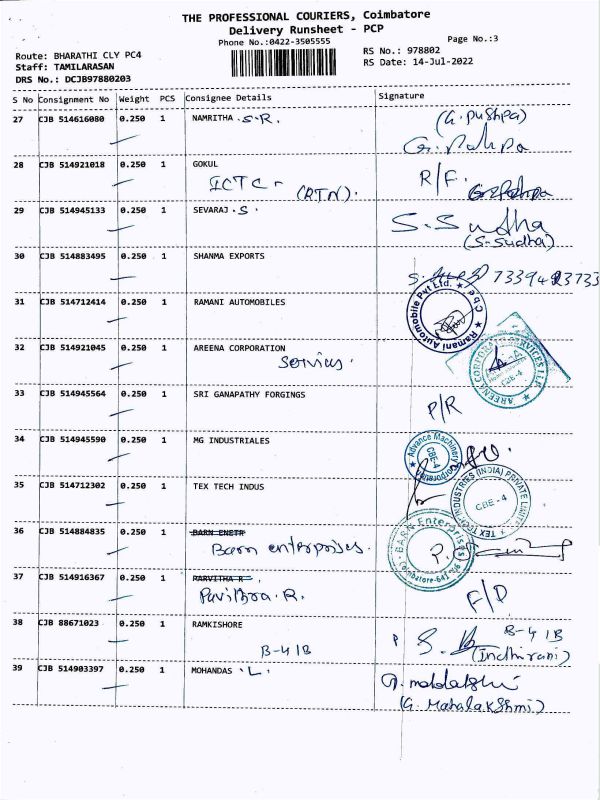 THE PROFESSIONAL COURIERS, Coimbatore
Delivery Runsheet - PCP
Phone No.:0422-3505555
Page No.:3
Route: BHARATHI CLY PC4
Staff: TAMILARASAN
DRS No.: DCJB97880203
RS No.: 978802
RS Date: 14-Jul-2022
S No Consignment No Weight PCS Consignee Details Signature
27 CJB 514616080 0.250 1 NAMRITHA .S.R. (G.Pushpa)
28 CJB 514921018 0.250 1 GOKUL R/F.
ICTC - (RTN).
29 CJB 514945133 0.250 1 SEVARAJ .S. S.Sudha
(S-Sudha)
30 CJB 514883495 0.250 1 SHANMA EXPORTS
31 CJB 514712414 0.250 1 RAMANI AUTOMOBILES Ramani Automobile Pvt Ltd. Cbe
32 CJB 514921045 0.250 1 AREENA CORPORATION AREENA CORPORATE SERVICES LLP CBE-4
Services.
33 CJB 514945564 0.250 1 SRI GANAPATHY FORGINGS P/R
34 CJB 514945590 0.250 1 MG INDUSTRIALES Advance Machinery Corporation CBE-4
35 CJB 514712302 0.250 1 TEX TECH INDUS TEX TECH INDUSTRIES (INDIA) PRIVATE LIMITED CBE - 4
36 CJB 514884835 0.250 1 BARN ENETR BARN Enterprises
Barn enterprises.
37 CJB 514916367 0.250 1 PARVITHA R F/D
Pavithra.R.
38 CJB 88671023 0.250 1 RAMKISHORE B-41B
B-41B (Indhirani)
39 CJB 514903397 0.250 1 MOHANDAS .L.
(G. Mahalakshmi)